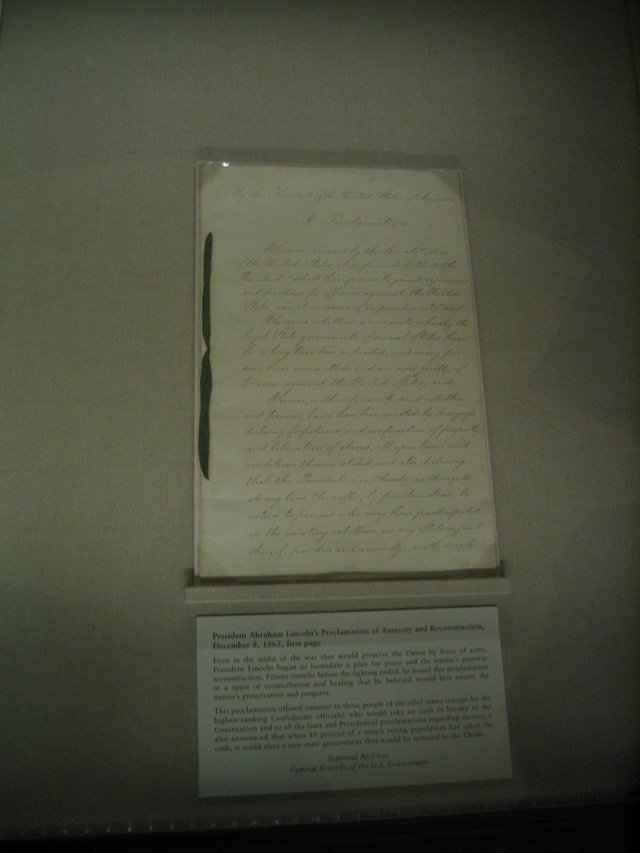 By the President of the United States of America
A Proclamation.
Whereas, in and by the Constitution
of the United States, it is provided that the
President "shall have power to grant reprieves
and pardons for offences against the United
States, except in cases of impeachment;" and
Whereas a rebellion now exists whereby the
loyal State governments of several States have
for a long time been subverted, and many per-
sons have committed and are now guilty of
treason against the United States; and
Whereas, with reference to said rebellion
and treason, laws have been enacted by Congress
declaring forfeitures and confiscation of property
and liberation of slaves, all upon terms and
conditions therein stated, and also declaring
that the President was thereby authorized
at any time thereafter, by proclamation, to
extend to persons who may have participated
in the existing rebellion, in any State or part
thereof, pardon and amnesty, with such
President Abraham Lincoln's Proclamation of Amnesty and Reconstruction,
December 8, 1863, first page
Even in the midst of the war that would preserve the Union by force of arms,
President Lincoln began to formulate a plan for peace and the nation's postwar
reconstruction. Fifteen months before the fighting ended, he issued this proclamation
in a spirit of reconciliation and healing that he believed would best ensure the
nation's preservation and progress.
This proclamation offered amnesty to those people of the rebel states (except for the
highest-ranking Confederate officials) who would take an oath of loyalty to the
Constitution and to all the laws and Presidential proclamations regarding slavery; it
also announced that when 10 percent of a state's voting population had taken the
oath, it could elect a new state government that would be restored to the Union.
National Archives
General Records of the U.S. Government